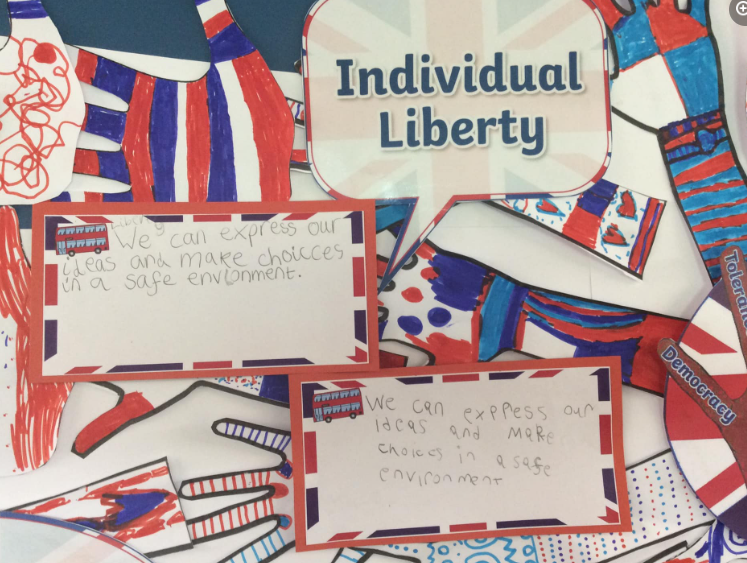 Individual
Liberty
liberty
We can express our
ideas and make choicces
in a safe envionment.
We can express our
ideas and make
choices in a safe
environment
Democracy